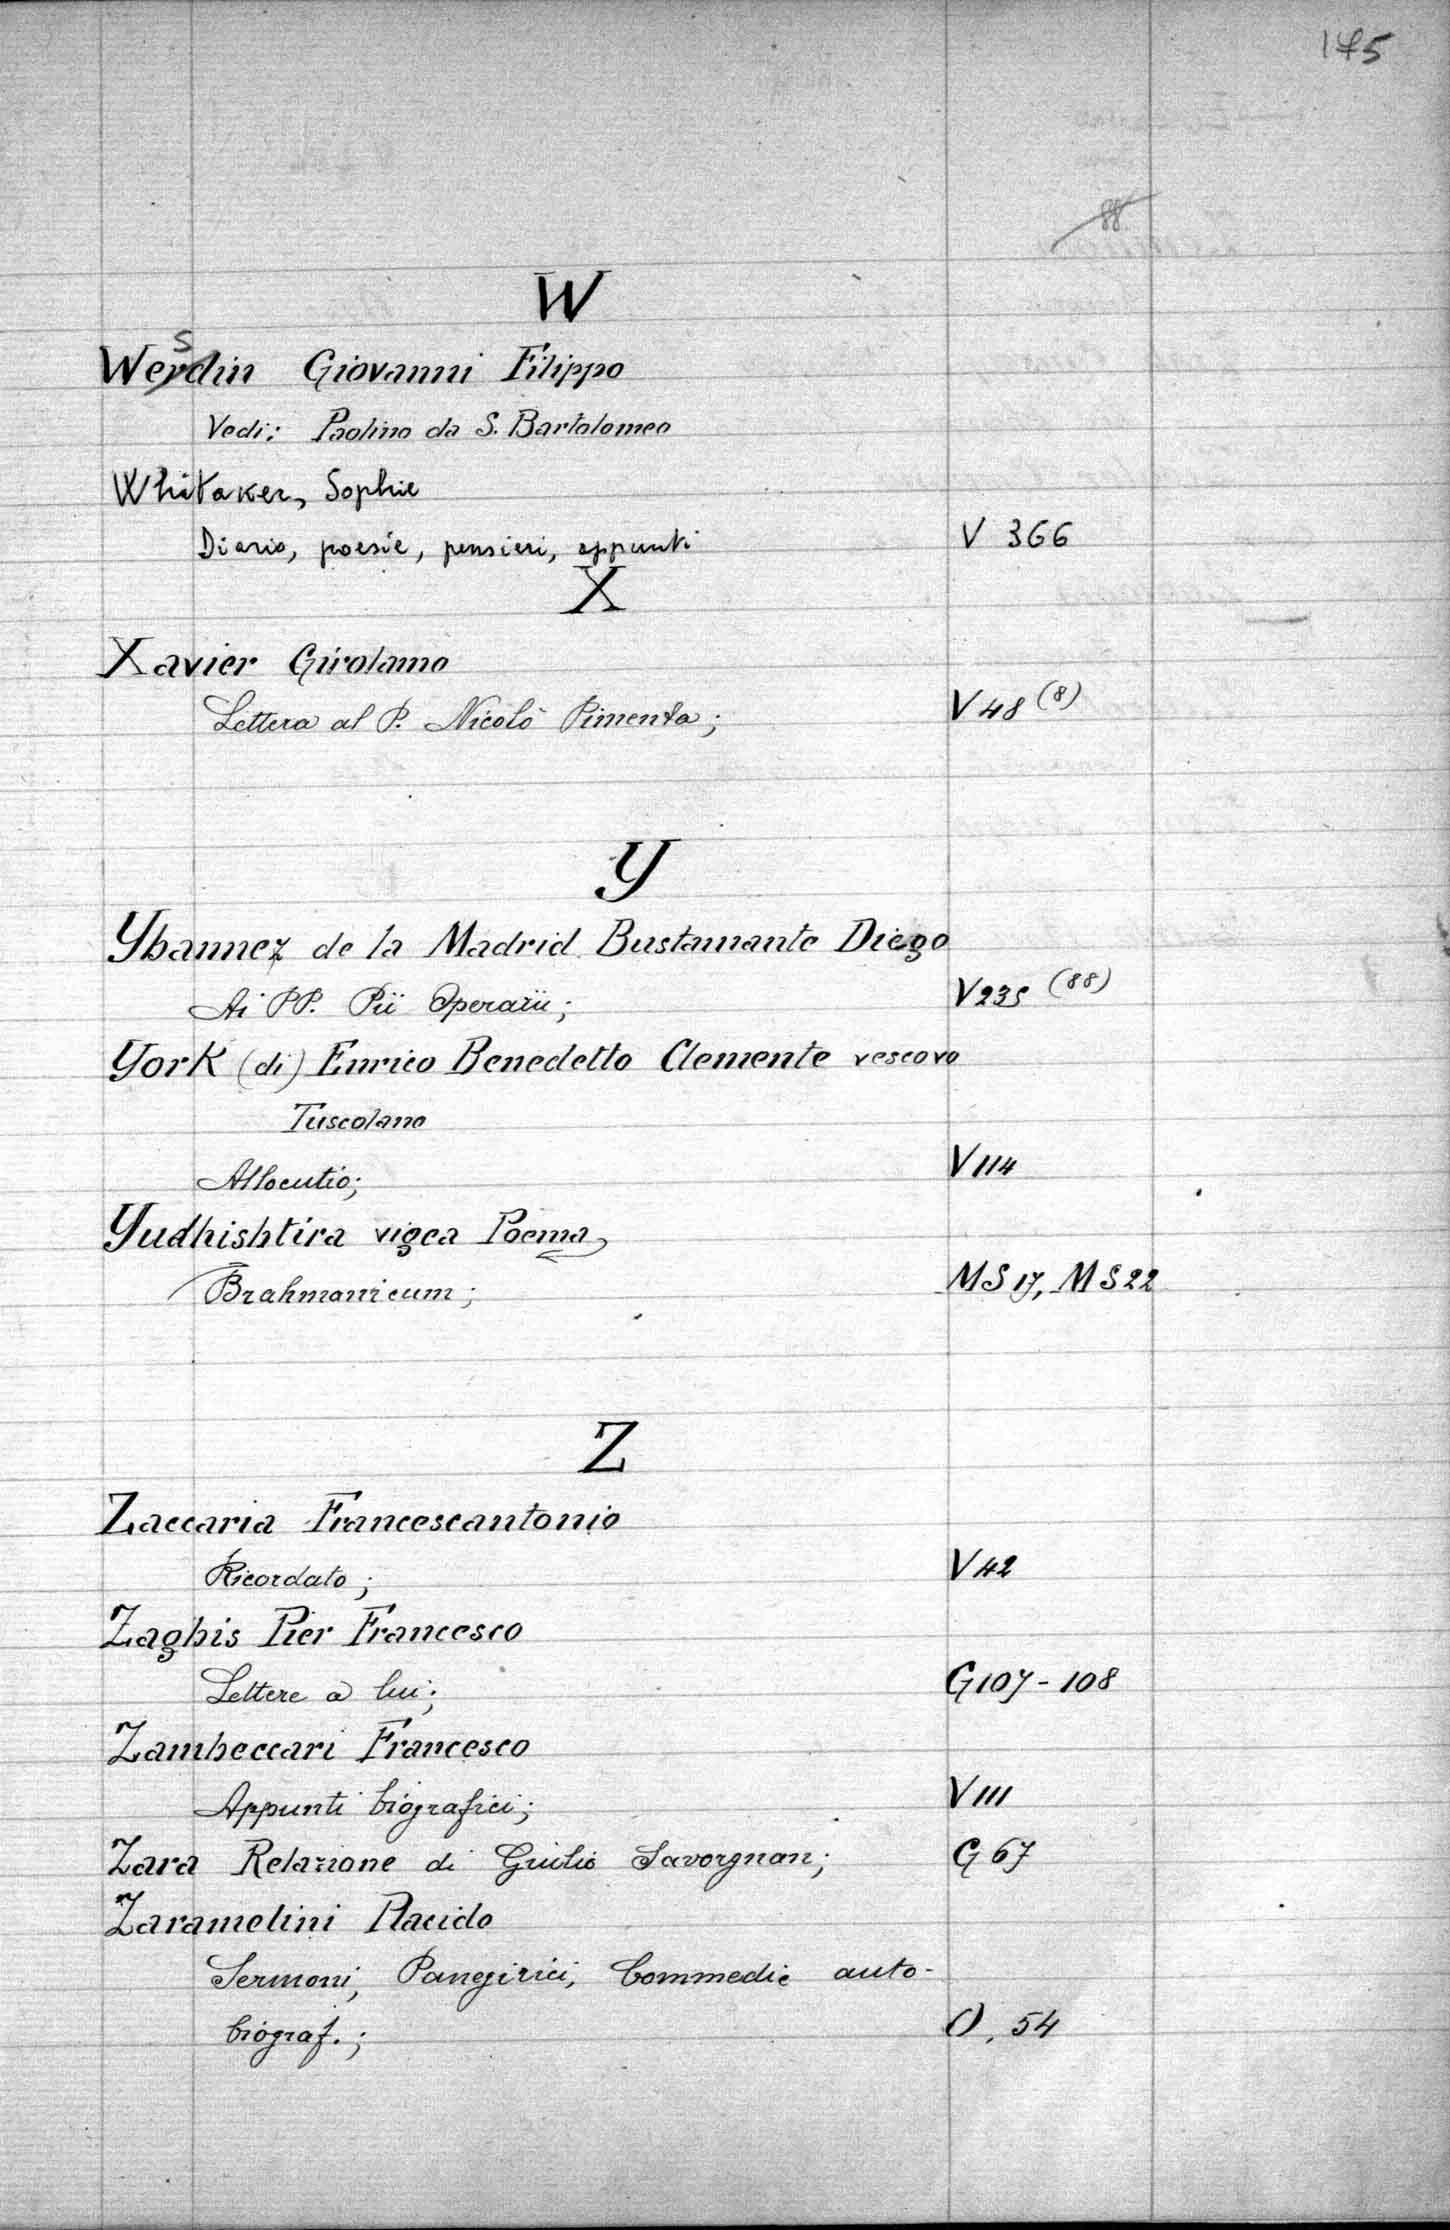 175
88
W
Wesdin Giovanni Filippo
Vedi: Paolino da S. Bartolomeo
Whitaker, Sophie
Diario, poesie, pensieri, appunti V 366
X
Xavier Girolamo
Lettera al P. Nicolò Pimenta; V 48 (8)
Y
Ybannez de la Madrid Bustamante Diego
Ai PP. Pii Operarii; V 235 (88)
York (di) Enrico Benedetto Clemente vescovo
Tuscolano
Allocutio; V 114
Yudhishtira vigea Poema
Brahmanicum; MS 17, MS 22
Z
Zaccaria Francescantonio
Ricordato; V 42
Zaghis Pier Francesco
Lettere a lui; G 107-108
Zambeccari Francesco
Appunti biografici; V 111
Zara Relazione di Giulio Savorgnan; G 67
Zaramelini Placido
Sermoni, Panegirici, Commedie auto-
biograf.; O. 54